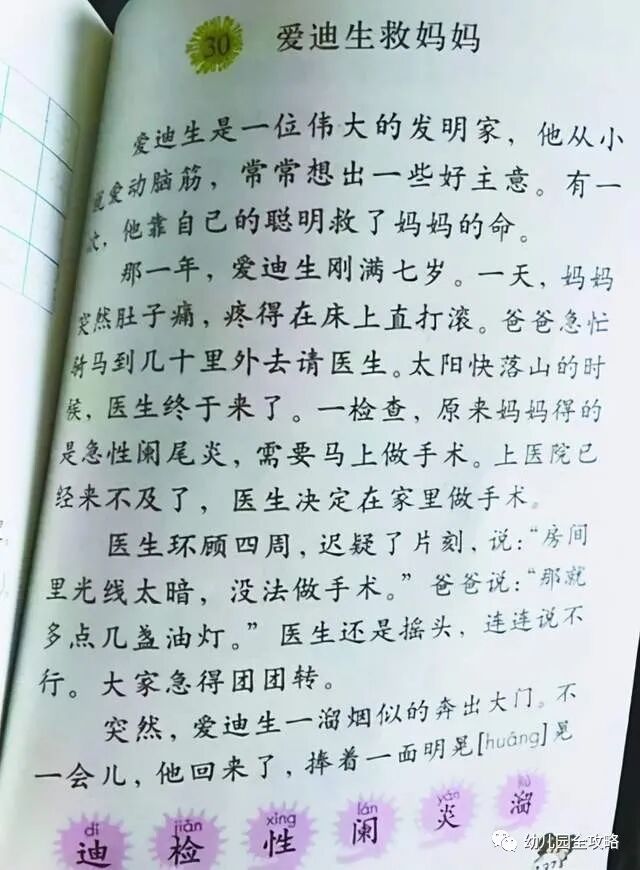 30 爱迪生救妈妈
爱迪生是一位伟大的发明家，他从小
就爱动脑筋，常常想出一些好主意。有一
次，他靠自己的聪明救了妈妈的命。
那一年，爱迪生刚满七岁。一天，妈妈
突然肚子痛，疼得在床上直打滚。爸爸急忙
骑马到几十里外去请医生。太阳快落山的时
候，医生终于来了。一检查，原来妈妈得的
是急性阑尾炎，需要马上做手术。上医院已
经来不及了，医生决定在家里做手术。
医生环顾四周，迟疑了片刻，说：“房间
里光线太暗，没法做手术。”爸爸说：“那就
多点几盏油灯。”医生还是摇头，连连说不
行。大家急得团团转。
突然，爱迪生一溜烟似的奔出大门。不
一会儿，他回来了，捧着一面明晃[huǎng]晃
dí jiǎn xìng lán yán liū
迪 检 性 阑 炎 溜
幼儿园全攻略